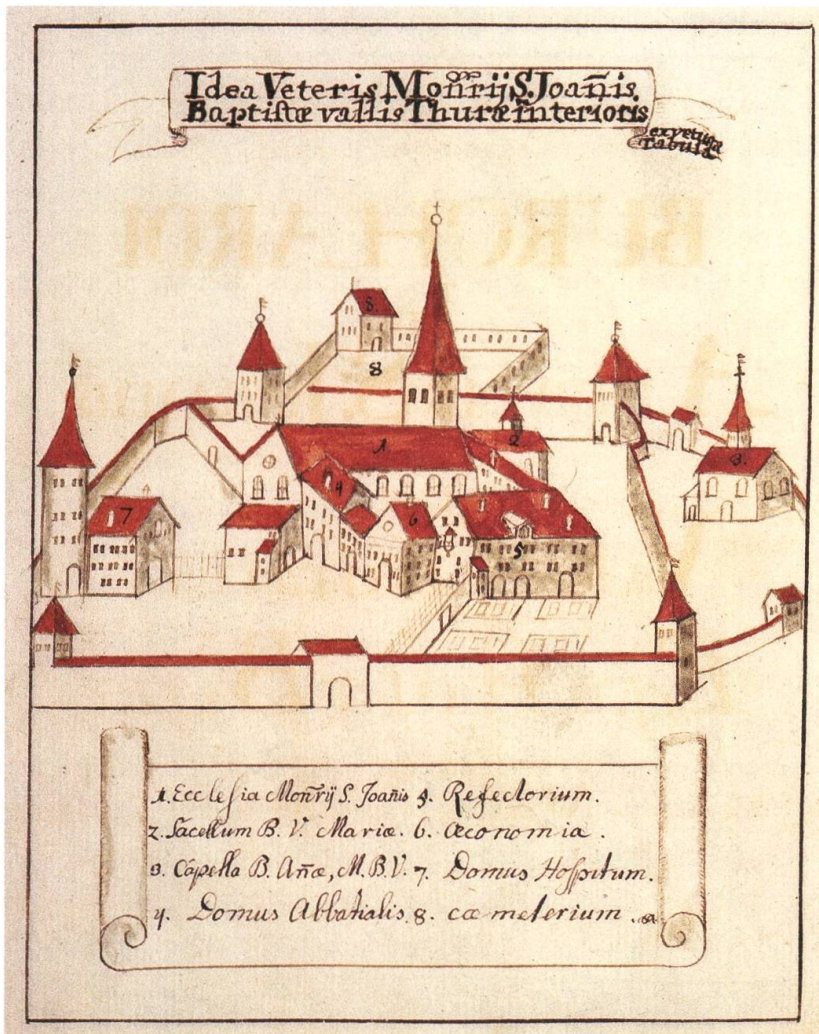 Idea Veteris Mon̄rij S. Joan̄is
Baptistæ vallis Thuræ interioris
ex vetusta
Tabula
8.
8
1
2
3.
4
6
7
5
1. Ecclesia Mon̄rij S. Joan̄is 5. Refectorium.
2. Sacellum B. V. Mariæ. 6. Œconomia.
3. Capella B. An̄æ, M. B. V. 7. Domus Hospitum.
4. Domus Abbatialis. 8. cæmeterium.